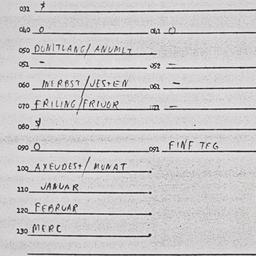 031 *
040 0 041 0
050 DONITLANG/ANUMLT
051 - 052 -
060 HERBST/VESTEN 061 -
070 FRILING/FRIJOR -
080
090 0 091 FINF TFG
100 AXEUDEST/MUNAT
110 JANUAR
120 FEBRUAR
130 MERC